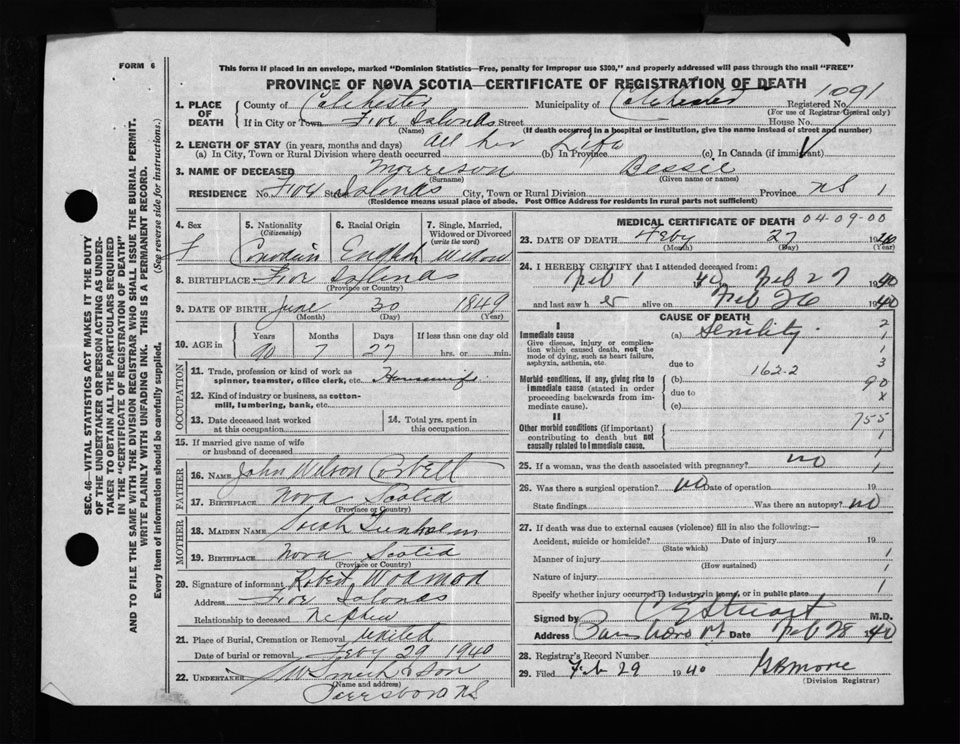 FORM 6
This form if placed in an envelope, marked "Dominion Statistics—Free, penalty for improper use $300," and properly addressed will pass through the mail "FREE"
PROVINCE OF NOVA SCOTIA—CERTIFICATE OF REGISTRATION OF DEATH
1091
1. PLACE OF DEATH
County of Colchester Municipality of Colchester Registered No.
(For use of Registrar-General only)
If in City or Town Five Islands Street House No.
(Name) (If death occurred in a hospital or institution, give the name instead of street and number)
2. LENGTH OF STAY (in years, months and days) All her Life
(a) In City, Town or Rural Division where death occurred (b) In Province (c) In Canada (if immigrant)
3. NAME OF DECEASED Morrison Bessie
(Surname) (Given name or names)
RESIDENCE No. Five Street Islands City, Town or Rural Division Province NS 1
(Residence means usual place of abode. Post Office Address for residents in rural parts not sufficient)
4. Sex F
5. Nationality (Citizenship) Canadian
6. Racial Origin English
7. Single, Married, Widowed or Divorced (write the word) Widow
8. BIRTHPLACE Five Islands
(Province or Country)
9. DATE OF BIRTH June 30 1849
(Month) (Day) (Year)
10. AGE in Years Months Days If less than one day old
90 7 27 hrs. or min.
OCCUPATION
11. Trade, profession or kind of work as spinner, teamster, office clerk, etc. Housewife
12. Kind of industry or business, as cotton-mill, lumbering, bank, etc.
13. Date deceased last worked at this occupation
14. Total yrs. spent in this occupation
15. If married give name of wife or husband of deceased
FATHER
16. NAME John Wilson Corbett
17. BIRTHPLACE Nova Scotia
(Province or Country)
MOTHER
18. MAIDEN NAME Sarah
19. BIRTHPLACE Nova Scotia
(Province or Country)
20. Signature of informant Robert
Address Five Islands
Relationship to deceased nephew
21. Place of Burial, Cremation or Removal United
Date of burial or removal Feby 29 1940
22. UNDERTAKER & Son
(Name and address)
NS
MEDICAL CERTIFICATE OF DEATH 04-09-00
23. DATE OF DEATH Feby 27 1940
(Month) (Day) (Year)
24. I HEREBY CERTIFY that I attended deceased from:
Feb 1 40 Feb 27 1940
and last saw h er alive on Feb 26 1940
CAUSE OF DEATH
I
Immediate cause (a) Senility 2
Give disease, injury or complication which caused death, not the mode of dying, such as heart failure, asphyxia, asthenia, etc.
1
1
due to 3
162-2
Morbid conditions, if any, giving rise to immediate cause (stated in order proceeding backwards from immediate cause).
(b) 90
due to x
(c)
II
755
Other morbid conditions (if important) contributing to death but not causally related to immediate cause.
1
25. If a woman, was the death associated with pregnancy? no 1
26. Was there a surgical operation? NO Date of operation 19
State findings Was there an autopsy? NO
27. If death was due to external causes (violence) fill in also the following:—
Accident, suicide or homicide? Date of injury 19
(State which)
Manner of injury 1
(How sustained)
Nature of injury 1
Specify whether injury occurred in industry, in home, or in public place 1
Signed by Stuart M.D.
Address Date Feb 28 1940
28. Registrar's Record Number
29. Filed Feb 29 1940
(Division Registrar)
SEC. 46—VITAL STATISTICS ACT MAKES IT THE DUTY
OF THE UNDERTAKER OR PERSON ACTING AS UNDER-
TAKER TO OBTAIN ALL THE PARTICULARS REQUIRED
IN THE "CERTIFICATE OF REGISTRATION OF DEATH"
AND TO FILE THE SAME WITH THE DIVISION REGISTRAR WHO SHALL ISSUE THE BURIAL PERMIT.
WRITE PLAINLY WITH UNFADING INK. THIS IS A PERMANENT RECORD.
Every item of information should be carefully supplied. (See reverse side for instructions.)